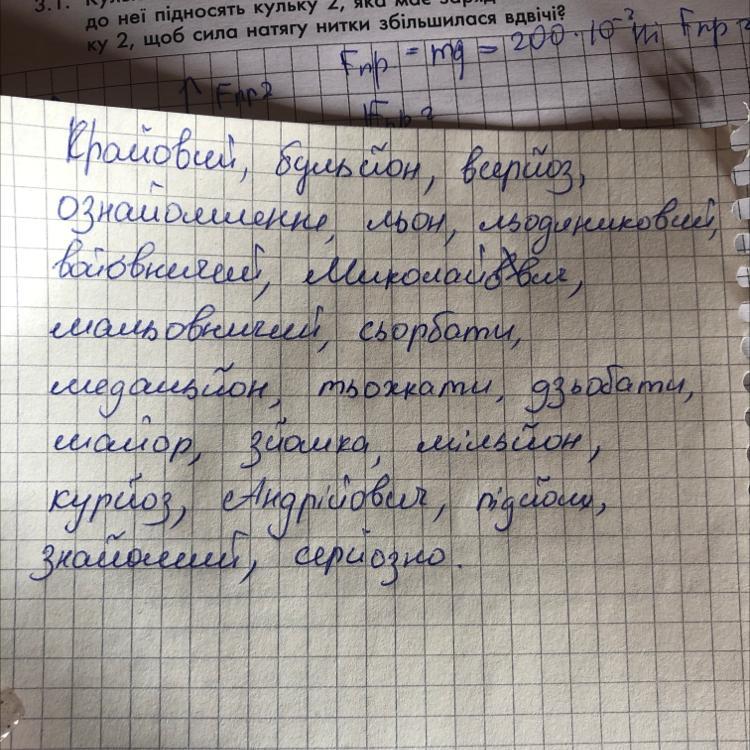 3.1. 
до неї підносять кульку 2, яка має заряд
ку 2, щоб сила натягу нитки збільшилася вдвічі?
Fпр = mg = 200 · 10⁻³ Fпр
Fпр2
Fпр2
Крайовий, бульйон, всерйоз,
ознайомлення, льон, льодяниковий,
войовничий, Миколайович,
мальовничий, сьорбати,
медальйон, тьохкати, дзьобати,
майор, зйомка, мільйон,
курйоз, Андрійович, підйом,
знайомий, серйозно.